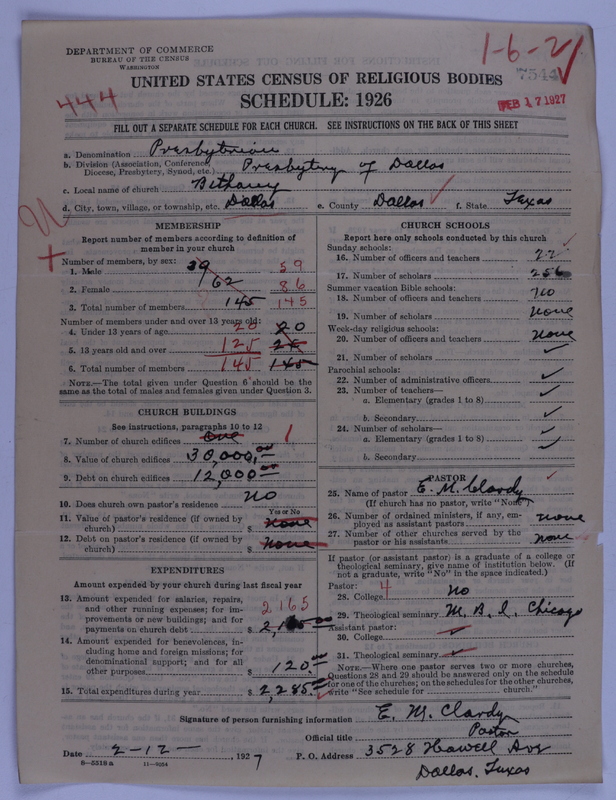 DEPARTMENT OF COMMERCE
BUREAU OF THE CENSUS
WASHINGTON
1-6-21
7544
444
UNITED STATES CENSUS OF RELIGIOUS BODIES
SCHEDULE: 1926
FEB 17 1927
FILL OUT A SEPARATE SCHEDULE FOR EACH CHURCH. SEE INSTRUCTIONS ON THE BACK OF THIS SHEET
a. Denomination Presbyterian
b. Division (Association, Conference, Diocese, Presbytery, Synod, etc.) Presbytery of Dallas
c. Local name of church Bethany
d. City, town, village, or township, etc. Dallas e. County Dallas f. State Texas
MEMBERSHIP
Report number of members according to definition of
member in your church
Number of members, by sex:
1. Male 39 59
2. Female 62 86
3. Total number of members 145 145
Number of members under and over 13 years old:
4. Under 13 years of age 20 20
5. 13 years old and over 125
6. Total number of members 145 145
NOTE.—The total given under Question 6 should be the
same as the total of males and females given under Question 3.
CHURCH BUILDINGS
See instructions, paragraphs 10 to 12
7. Number of church edifices One 1
8. Value of church edifices 30,000.00
9. Debt on church edifices 12,000.00
10. Does church own pastor's residence no
Yes or No
11. Value of pastor's residence (if owned by
church) $ none
12. Debt on pastor's residence (if owned by
church) $ none
EXPENDITURES
Amount expended by your church during last fiscal year
13. Amount expended for salaries, repairs,
and other running expenses; for improvements
or new buildings; and for
payments on church debt $ 2165
14. Amount expended for benevolences, including
home and foreign missions; for
denominational support; and for all
other purposes $ 120.00
15. Total expenditures during year $ 2,285.00
CHURCH SCHOOLS
Report here only schools conducted by this church
Sunday schools:
16. Number of officers and teachers 22
17. Number of scholars 256
Summer vacation Bible schools:
18. Number of officers and teachers no
19. Number of scholars none
Week-day religious schools:
20. Number of officers and teachers none
21. Number of scholars ✓
Parochial schools:
22. Number of administrative officers ✓
23. Number of teachers—
a. Elementary (grades 1 to 8) ✓
b. Secondary ✓
24. Number of scholars—
a. Elementary (grades 1 to 8) ✓
b. Secondary
PASTOR
25. Name of pastor E. M. Clardy
(If church has no pastor, write "None")
26. Number of ordained ministers, if any, employed
as assistant pastors none
27. Number of other churches served by the
pastor or his assistants none
If pastor (or assistant pastor) is a graduate of a college or
theological seminary, give name of institution below. (If
not a graduate, write "No" in the space indicated.)
Pastor:
28. College no
29. Theological seminary M. B. I. Chicago
Assistant pastor:
30. College ✓
31. Theological seminary ✓
NOTE.—Where one pastor serves two or more churches,
Questions 28 and 29 should be answered only on the schedule
for one of the churches; on the schedules for the other churches,
write "See schedule for church."
Signature of person furnishing information E. M. Clardy
Official title Pastor
Date 2-12- , 1927 P. O. Address 3528 Howell Ave
8-5518a 11-9054
Dallas, Texas